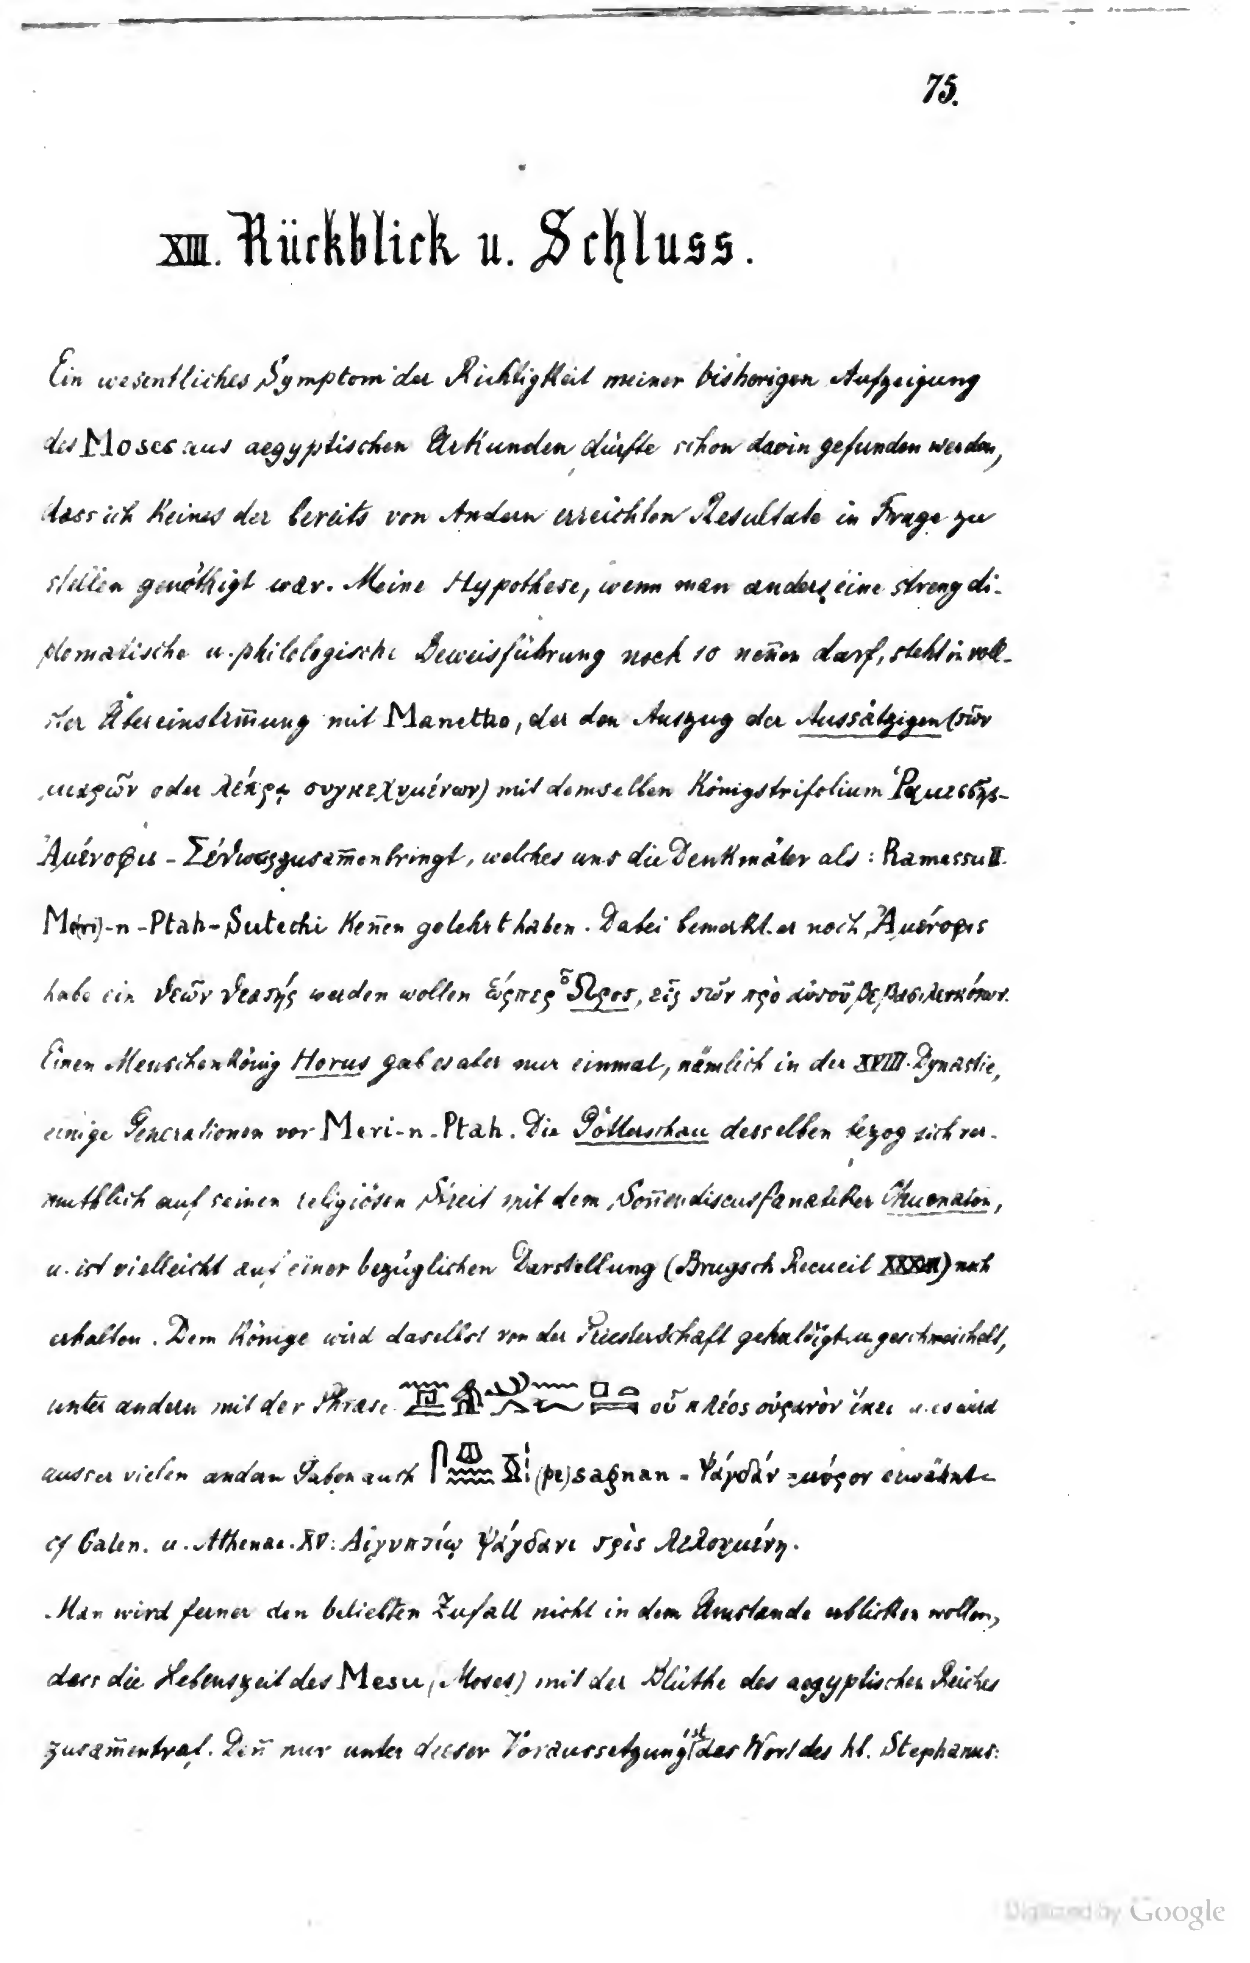 75.
XIII. Rückblick u. Schluss.
Ein wesentliches Symptom der Richtigkeit meiner bisherigen Aufzeigung
des Moses aus aegyptischen Urkunden dürfte schon darin gefunden werden,
dass ich Keines der bereits von Andern erreichten Resultate in Frage zu
stellen genöthigt war. Meine Hypothese, wenn man anders eine streng di-
plomatische u. philologische Beweisführung noch so neñen darf, steht in voll-
ster Übereinstim̃ung mit Manetho, der den Auszug der Aussätzigen (τῶν
μιαρῶν oder λέπρᾳ συγκεχυμένων) mit demselben Königstrifolium Ῥαμεσσῆς-
Ἀμένοφις - Σέθως zusam̃enbringt, welches uns die Denkmäler als: Ramessu II.
M(eri)-n-Ptah-Sutechi Keñen gelehrt haben. Dabei bemerkt er noch, Ἀμένοφις
habe ein θεῶν θεατής werden wollen ὥςπερ ὁ Ὧρος, εἷς τῶν πρὸ αὐτοῦ βεβασιλευκότων.
Einen Menschenkönig Horus gab es aber nur einmal, nämlich in der XVIII. Dynastie,
einige Generationen vor Meri-n-Ptah. Die Götterschau desselben bezog sich ver-
muthlich auf seinen religiösen Streit mit dem Soñendiscusfanatiker Chuenaten,
u. ist vielleicht auf einer bezüglichen Darstellung (Brugsch Recueil ) noch
erhalten. Dem Könige wird daselbst von der Priesterschaft gehuldigt u. geschmeichelt,
unter andern mit der Phrase οὗ κλέος οὐρανὸν ἵκει u. es wird
ausser vielen andern Gaben auch (pe)sagnan = ψάγδαν = μύρον erwähnt
cf Galen. u. Athenae. XV: Αἰγυπτίῳ ψάγδανι τρὶς λελουμένη.
Man wird ferner den beliebten Zufall nicht in dem Umstande erblicken wollen,
dass die Lebenszeit des Mesu (Moses) mit der Blüthe des aegyptischen Reiches
zusam̃entraf. Deñ nur unter dieser Voraussetzung ist das Wort des hl. Stephanus:
Digitized by Google